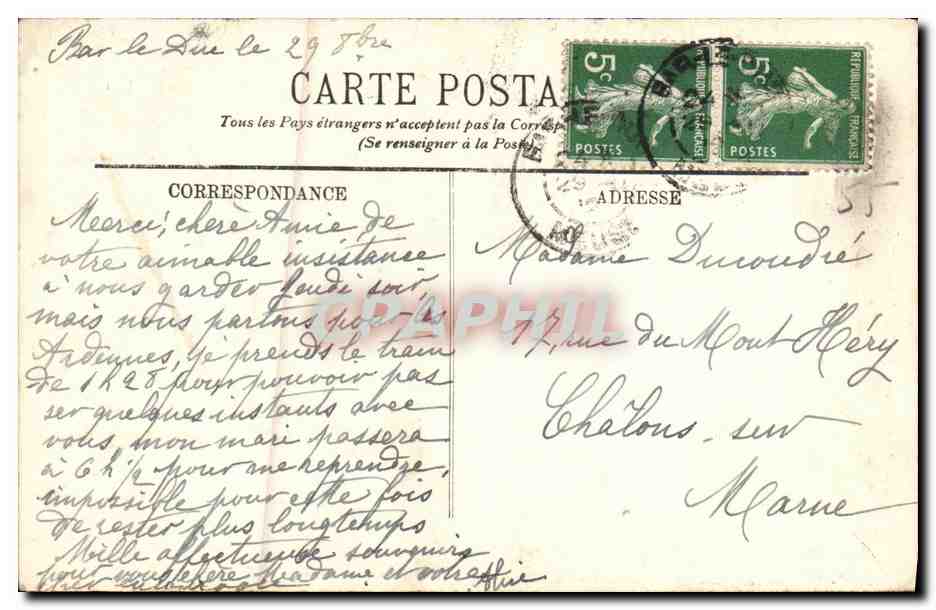 Bar le Duc le 29 8bre
CARTE POSTA
Tous les Pays étrangers n'acceptent pas la Corresp
(Se renseigner à la Poste
5c 5c
RÉPUBLIQUE FRANÇAISE RÉPUBLIQUE FRANÇAISE
POSTES POSTES
CORRESPONDANCE
Merci, chère Amie, de
votre aimable insistance
à nous garder Jeudi soir
mais nous partons pour les
Ardennes, je prends le train
de 1h28 pour pouvoir pas
ser quelques instants avec
vous, mon mari passera
à 6h 1/2 pour me reprendre,
impossible pour cette fois
de rester plus longtemps
Mille affectueux souvenirs
pour vous chère Madame et votre
ADRESSE
55
Madame Ducoudré
17, rue du Mont Héry
Châlons-sur
Marne
CPAPHIL